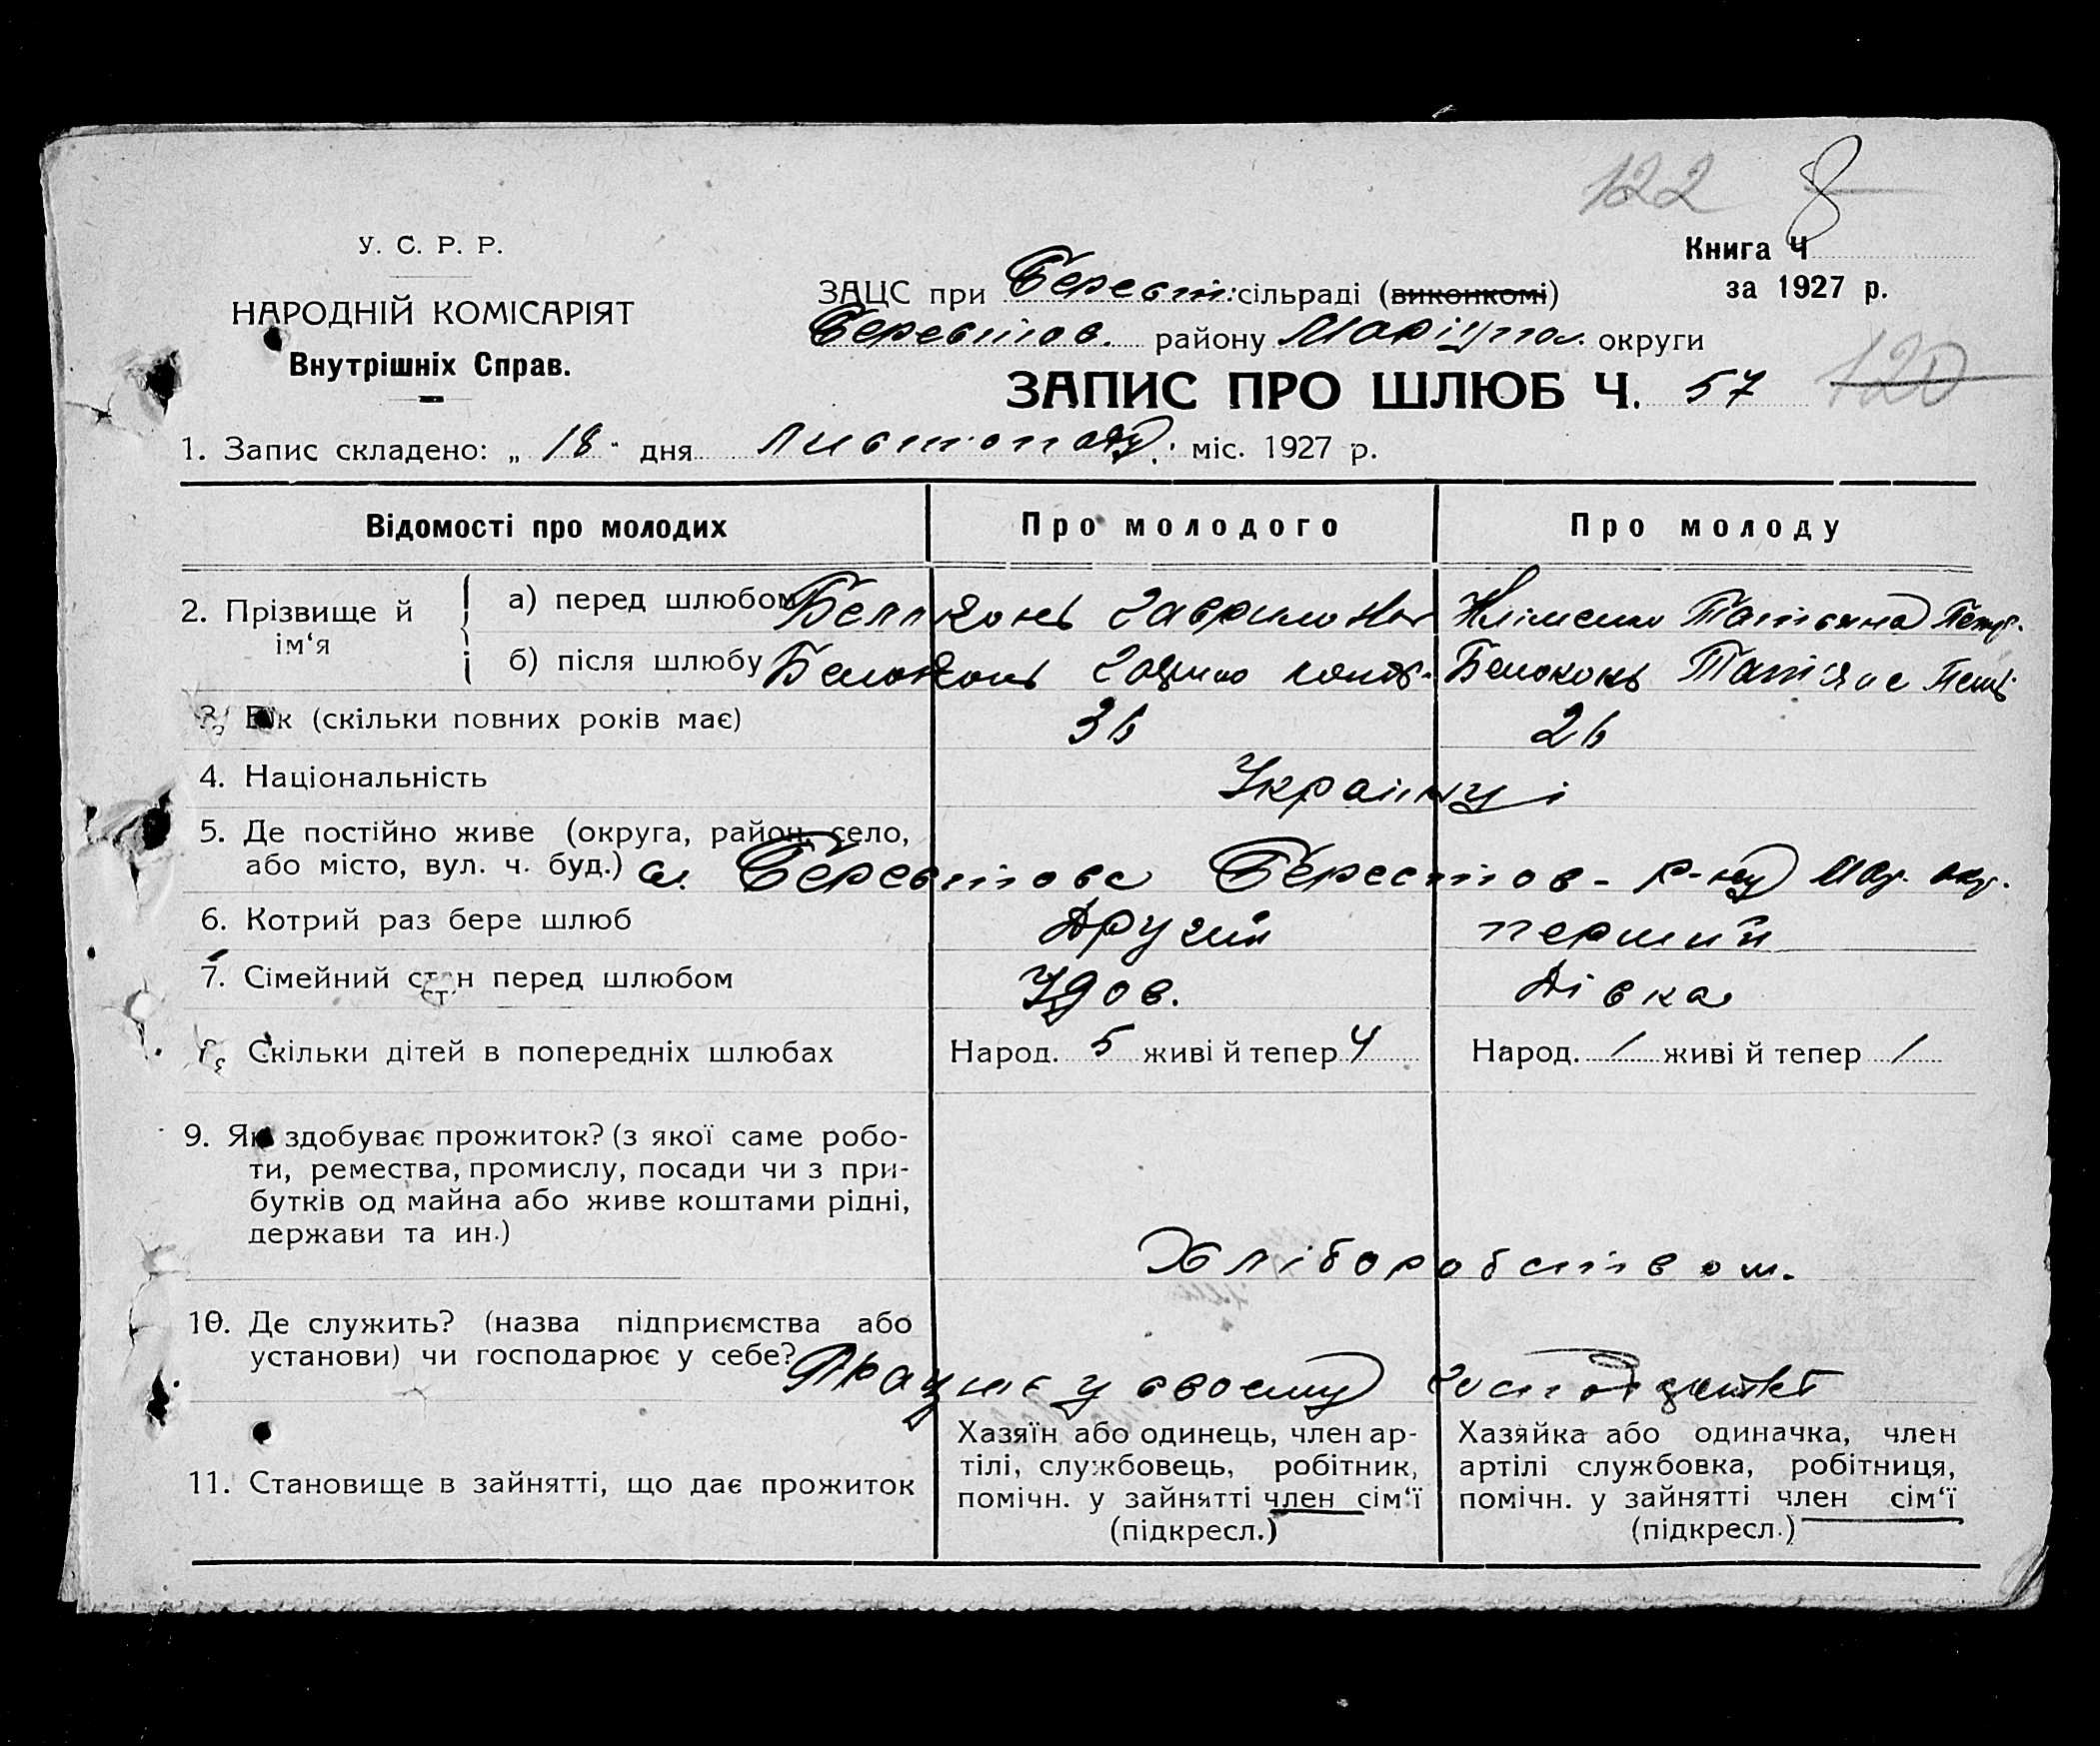 122 8
У. С. Р. Р.
Книга Ч
НАРОДНІЙ КОМІСАРІЯТ
ЗАЦС при Берест: сільраді (виконкомі)
за 1927 р.
Внутрішніх Справ.
Берестов. району Маріупол. округи
ЗАПИС ПРО ШЛЮБ Ч. 57 120
1. Запис складено: „ 18 " дня Листопаду міс. 1927 р.
Відомості про молодих Про молодого Про молоду
2. Прізвище й ім'я
а) перед шлюбом Татьяна Петр.
б) після шлюбу Белоконь Белоконь
3. Вік (скільки повних років має) 36 26
4. Національність Українці
5. Де постійно живе (округа, район, село,
або місто, вул. ч. буд.) с. Берестове Берестов- р-ну Мар. окр.
6. Котрий раз бере шлюб Другий перший
7. Сімейний стан перед шлюбом Удов. Дівка
Скільки дітей в попередніх шлюбах Народ. 5 живі й тепер 4 Народ. / живі й тепер /
9. Як здобуває прожиток? (з якої саме робо-
ти, ремества, промислу, посади чи з при-
бутків од майна або живе коштами рідні,
держави та ин.)
Хліборобством.
10. Де служить? (назва підприємства або
установи) чи господарює у себе?
Працює у своєму
11. Становище в зайнятті, що дає прожиток
Хазяїн або одинець, член ар-
тілі, службовець, робітник,
помічн. у зайнятті член сім'ї
(підкресл.)
Хазяйка або одиначка, член
артілі службовка, робітниця,
помічн. у зайнятті член сім'ї
(підкресл.)